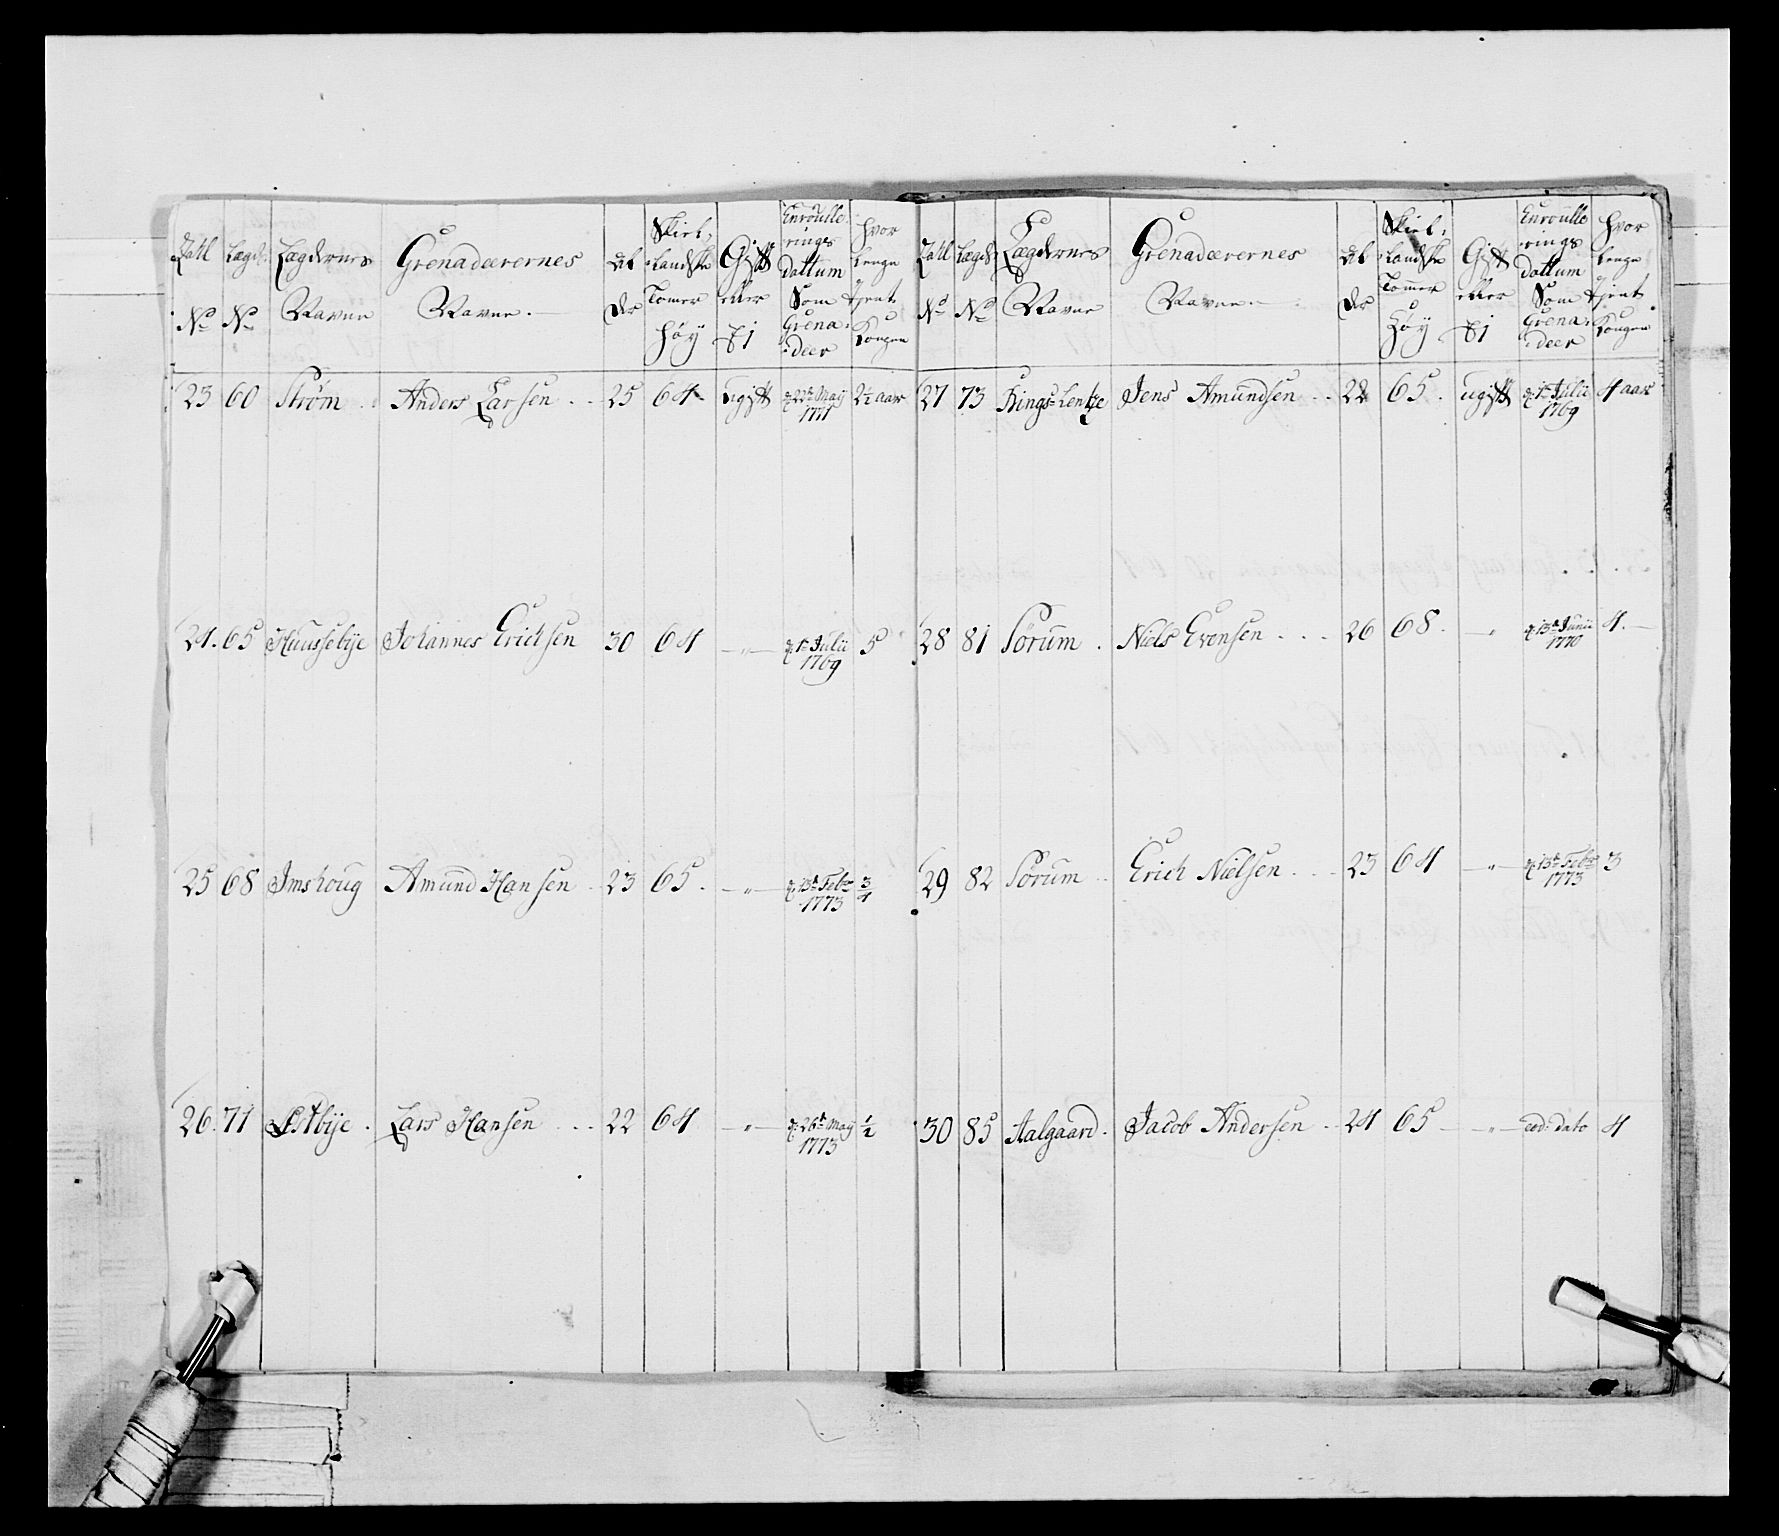 Tall No
Lægd No
Lægdernes Navne
Grenadeerernes Navne.
Al der
Skiel-landske Tomer Høy
Gift eller Ej
Enroulle-rings dattum Som Grena-deer
Hvor lenge Tjent Kongen
23 60 Strøm Anders Larsen 25 64 ugift d. 22de May 1771 2½ aar
24. 65 Haussebye Johannes Erichsen 30 64 —"— d. 1te Julii 1769 5
25 68 Imshoug Amund Hansen 23 65. —"— d. 13de Febr 1773 3/4
26. 71 Østbye. Lars Hansen 22 64 —"— d. 26de May 1773 1/2
Tall No
Lægds No
Lægdernes Navne
Grenadeerernes Navne.
Al der
Skiel-landske Tomer Høy
Gift eller Ej
Enroulle-rings dattum Som Grena-deer
Hvor lenge Tjent Kongen
27 73 Rings-Lentze Jens Amundsen 22 65. ugift d. 1te Julii 1769 4 aar
28 81 Sørum. Niels Evensen 26 68. —"— d. 13de Junii 1770 4.—
29 82 Sørum Erich Nielsen 23 64 —"— d. 13de Febr 1773 3
30 85 Aalgaard. Jacob Andersen 24 65 —"— eod: dato 4